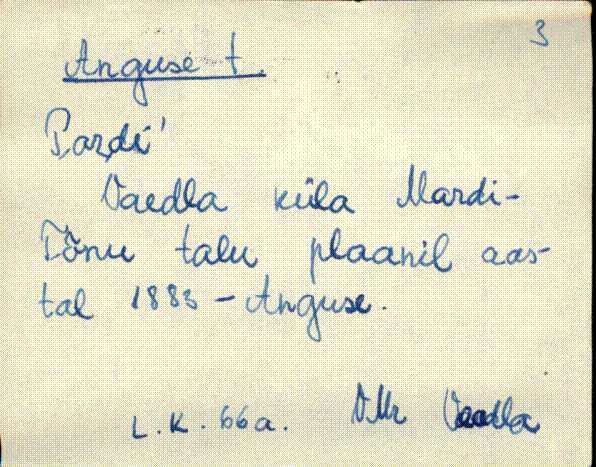 3
Anguse t.
Pardi'
Vaedla küla Mardi-
Tõnu talu plaanil aas-
tal 1883 - Anguse.
L.K. 66a. VMr Vaedla